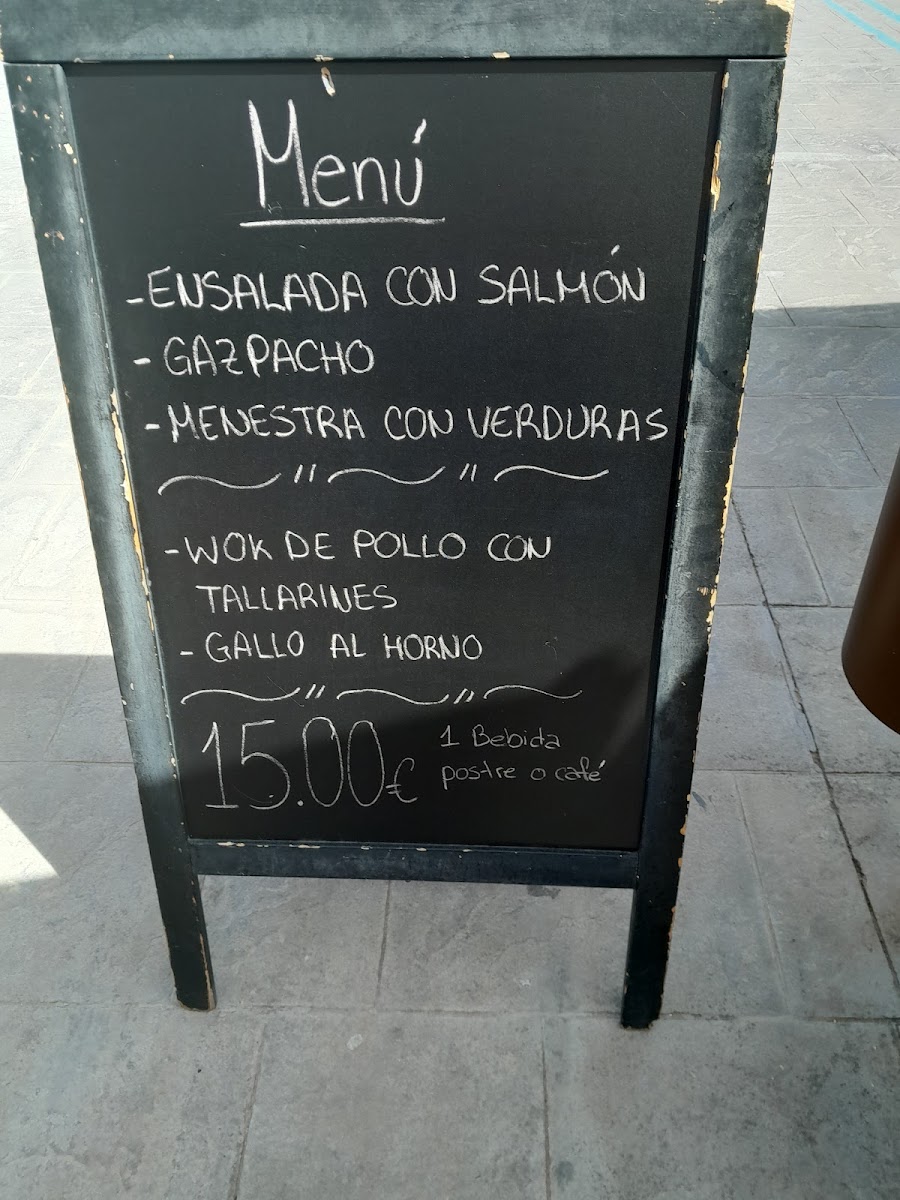 Menú
-ENSALADA CON SALMÓN
- GAZPACHO
-MENESTRA CON VERDURAS
-WOK DE POLLO CON
TALLARINES
- GALLO AL HORNO
15.00€
1 Bebida
postre o café